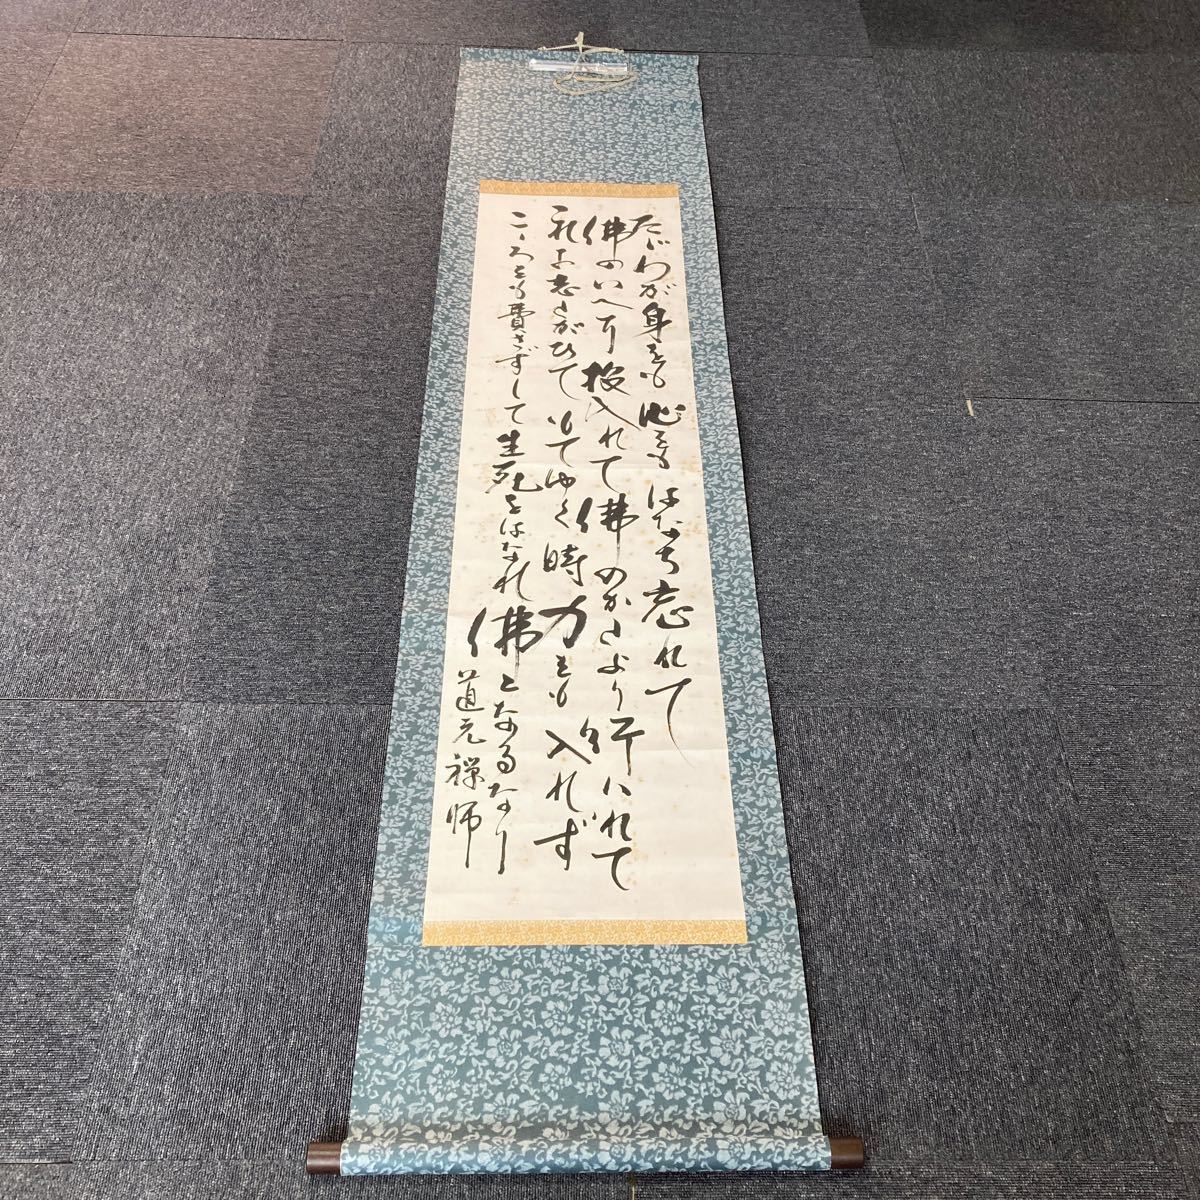 たゞわが身をも心をもはなち忘れて
佛のいへに投入れて佛のかたより行はれて
これにしたがひてもてゆく時力をも入れず
こゝろをも費さずして生死をはなれ佛となるなり
道元禅師